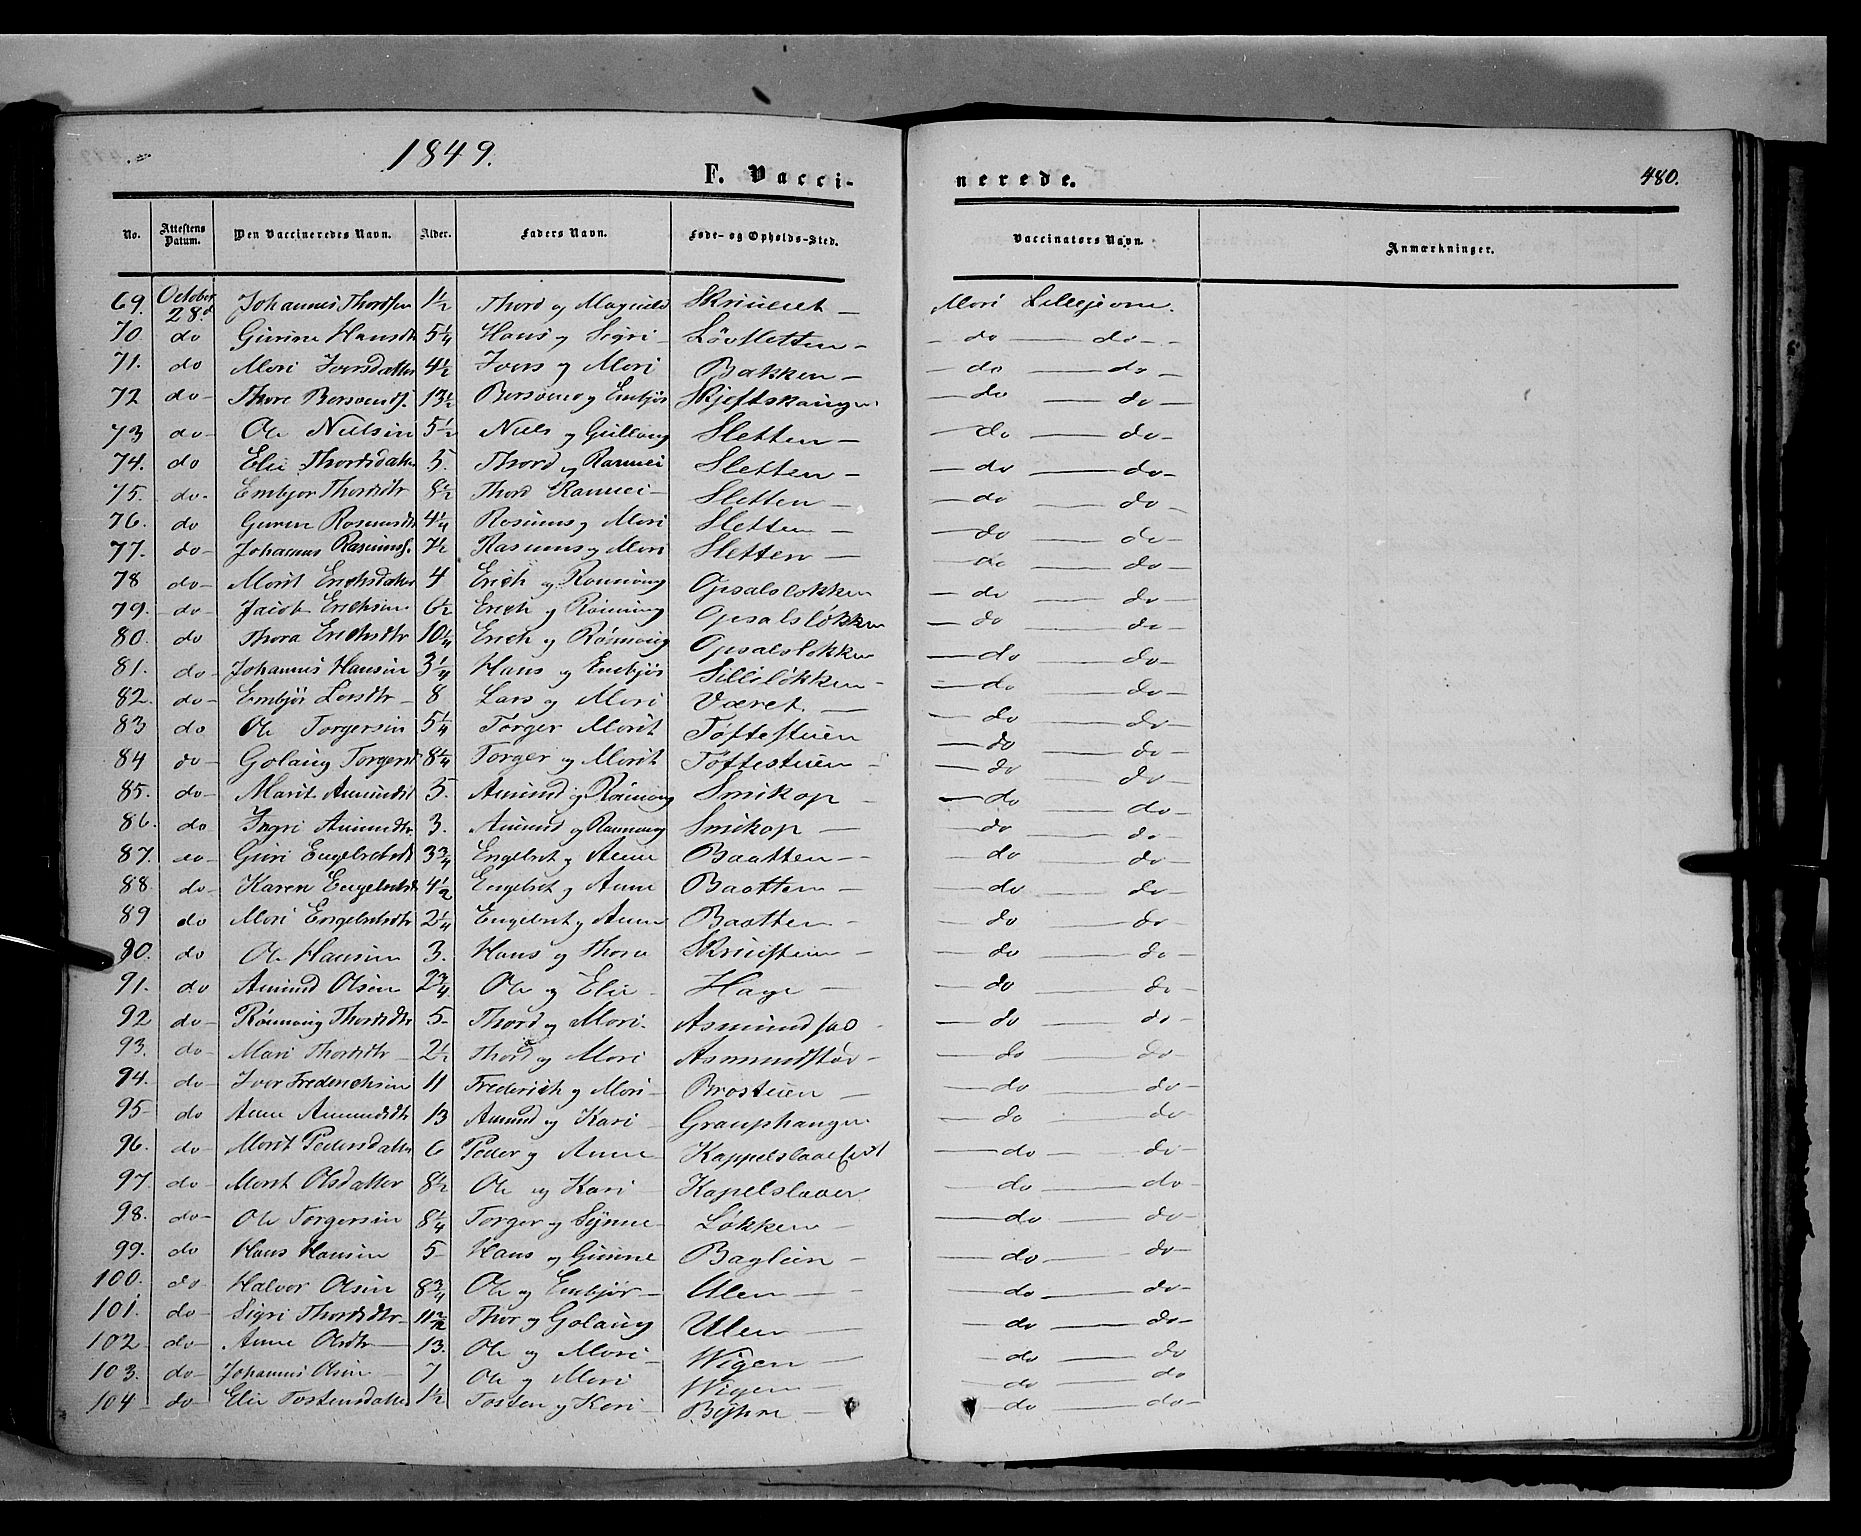 1849.
F. Vacci-
nerede.
480.
No. Attestens Datum. Den Vaccineredes Navn. Alder. Faders Navn. Føde- og Opholds-Sted. Vaccinators Navn. Anmærkninger.
69. October 28d Johannes Thordsen 1½ Thord og Magnild Mari Lillejevne.
70. do Gunne Hansdtr 5¼ Hans og Sigri Løvsletten - do - do -
71. do Mari Iversdatter 4½ Ivers og Mari Bakken - do - do -
72 do- Thore 13½ og Embjør Skjeftskanger - do do -
73 do- Ole Nielsen 5½ Niels og Gullaug Sletten - do do-
74. do Elie Thordsdatter 5. Thord og Sletten - do do-
75. do- Embjør Thordsdtr 8½ Thord Sletten - do do-
76. do Guren 4¼ Rasmus og Mari Sletten - do do-
77. do- Johannes Rasmuss. 7½ Rasmus og Mari Sletten - do do-
78 do- Marit Erichsdatter 4 Erich og Rønnoug Opsalsløkken - do do-
79. do- Jacob Erichsen 6½ Erich og Rønnoug Opsalsløkken - do do-
80. do Thora Erichsdtr 10¼ Erich og Rønnoug Opsalsløkken - do do-
81. do- Johannes Hansen 3¼ Hans og Embjør Silliløkken - do do-
82. do- Embjør Larsdtr 8 Lars og Mari Været - do do-
83 do Ole Torgersen 5¼ Torger Marit Toftestuen - do do-
84 do- Golaug Torgersd 8¼ Torger og Marit Toftestuen - do do-
85. do- Marit Amundsd 5. Amund og Rønnoug Smikop - do do-
86. do Ingri Amundtr 3. Amund og Rønnoug Smikop - do do-
87. do Guri Engebretsdt 3¾ Engebret og Anne Baatten - do do-
88. do- Karen Engebretsd 4½ Engebret og Anne Baatten - do do-
89 do Mari Engebretsdtr 2¼ Engebret og Anne Baatten - do do-
90. do Ole Hansen 3. Hans og Thora - do do-
91. do Amund Olsen 2¾ Ole og Elie Hage - do do-
92 do- Rønnoug Thordsdtr 5- Thord og Mari - do do-
93. do- Mari Thordsdtr 2½ Thord og Mari - do do-
94. do- Iver Frederichsen 11 Frederich og Mari Brostuen - do do-
95- do Anne Amundsdtr 13 Amund og Kari Grauphanger - do do-
96. do- Marit Pedersdatter 6 Peder og Anne - do do-
97. do- Marit Olsdatter 8½ Ole og Kari Kapelslaaen - do do-
98. do- Ole Torgersen 8¼ Torger og Synne Løkken - do do-
99. do Hans Hansen 5- Hans og Gunne Baglien - do do-
100. do Halvor Olsen 8¾ Ole og Embjør Ulen - do do-
101. do- Sigri Thordsdtr 11 Thor og Golaug Ulen - do do-
102 do- Anne Olsdtr 13. Ole og Mari Wigen - do do
103. do- Johannes Olsen 7 Ole og Mari Wigen - do do
104 do- Elie Tostensdatter 1½ Tosten og Kari Byhre - do do-